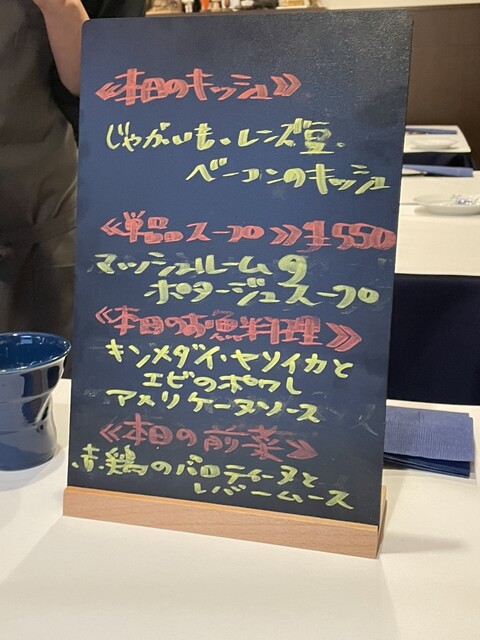 ≪本日のキッシュ≫
じゃがいも、レンズ豆、
ベーコンのキッシュ
≪単品スープ≫¥550
マッシュルームの
ポタージュスープ
≪本日のお魚料理≫
キンメダイ・ヤリイカと
エビのポワレ
アメリケーヌソース
≪本日の前菜≫
赤鶏のバロティーヌと
レバームース